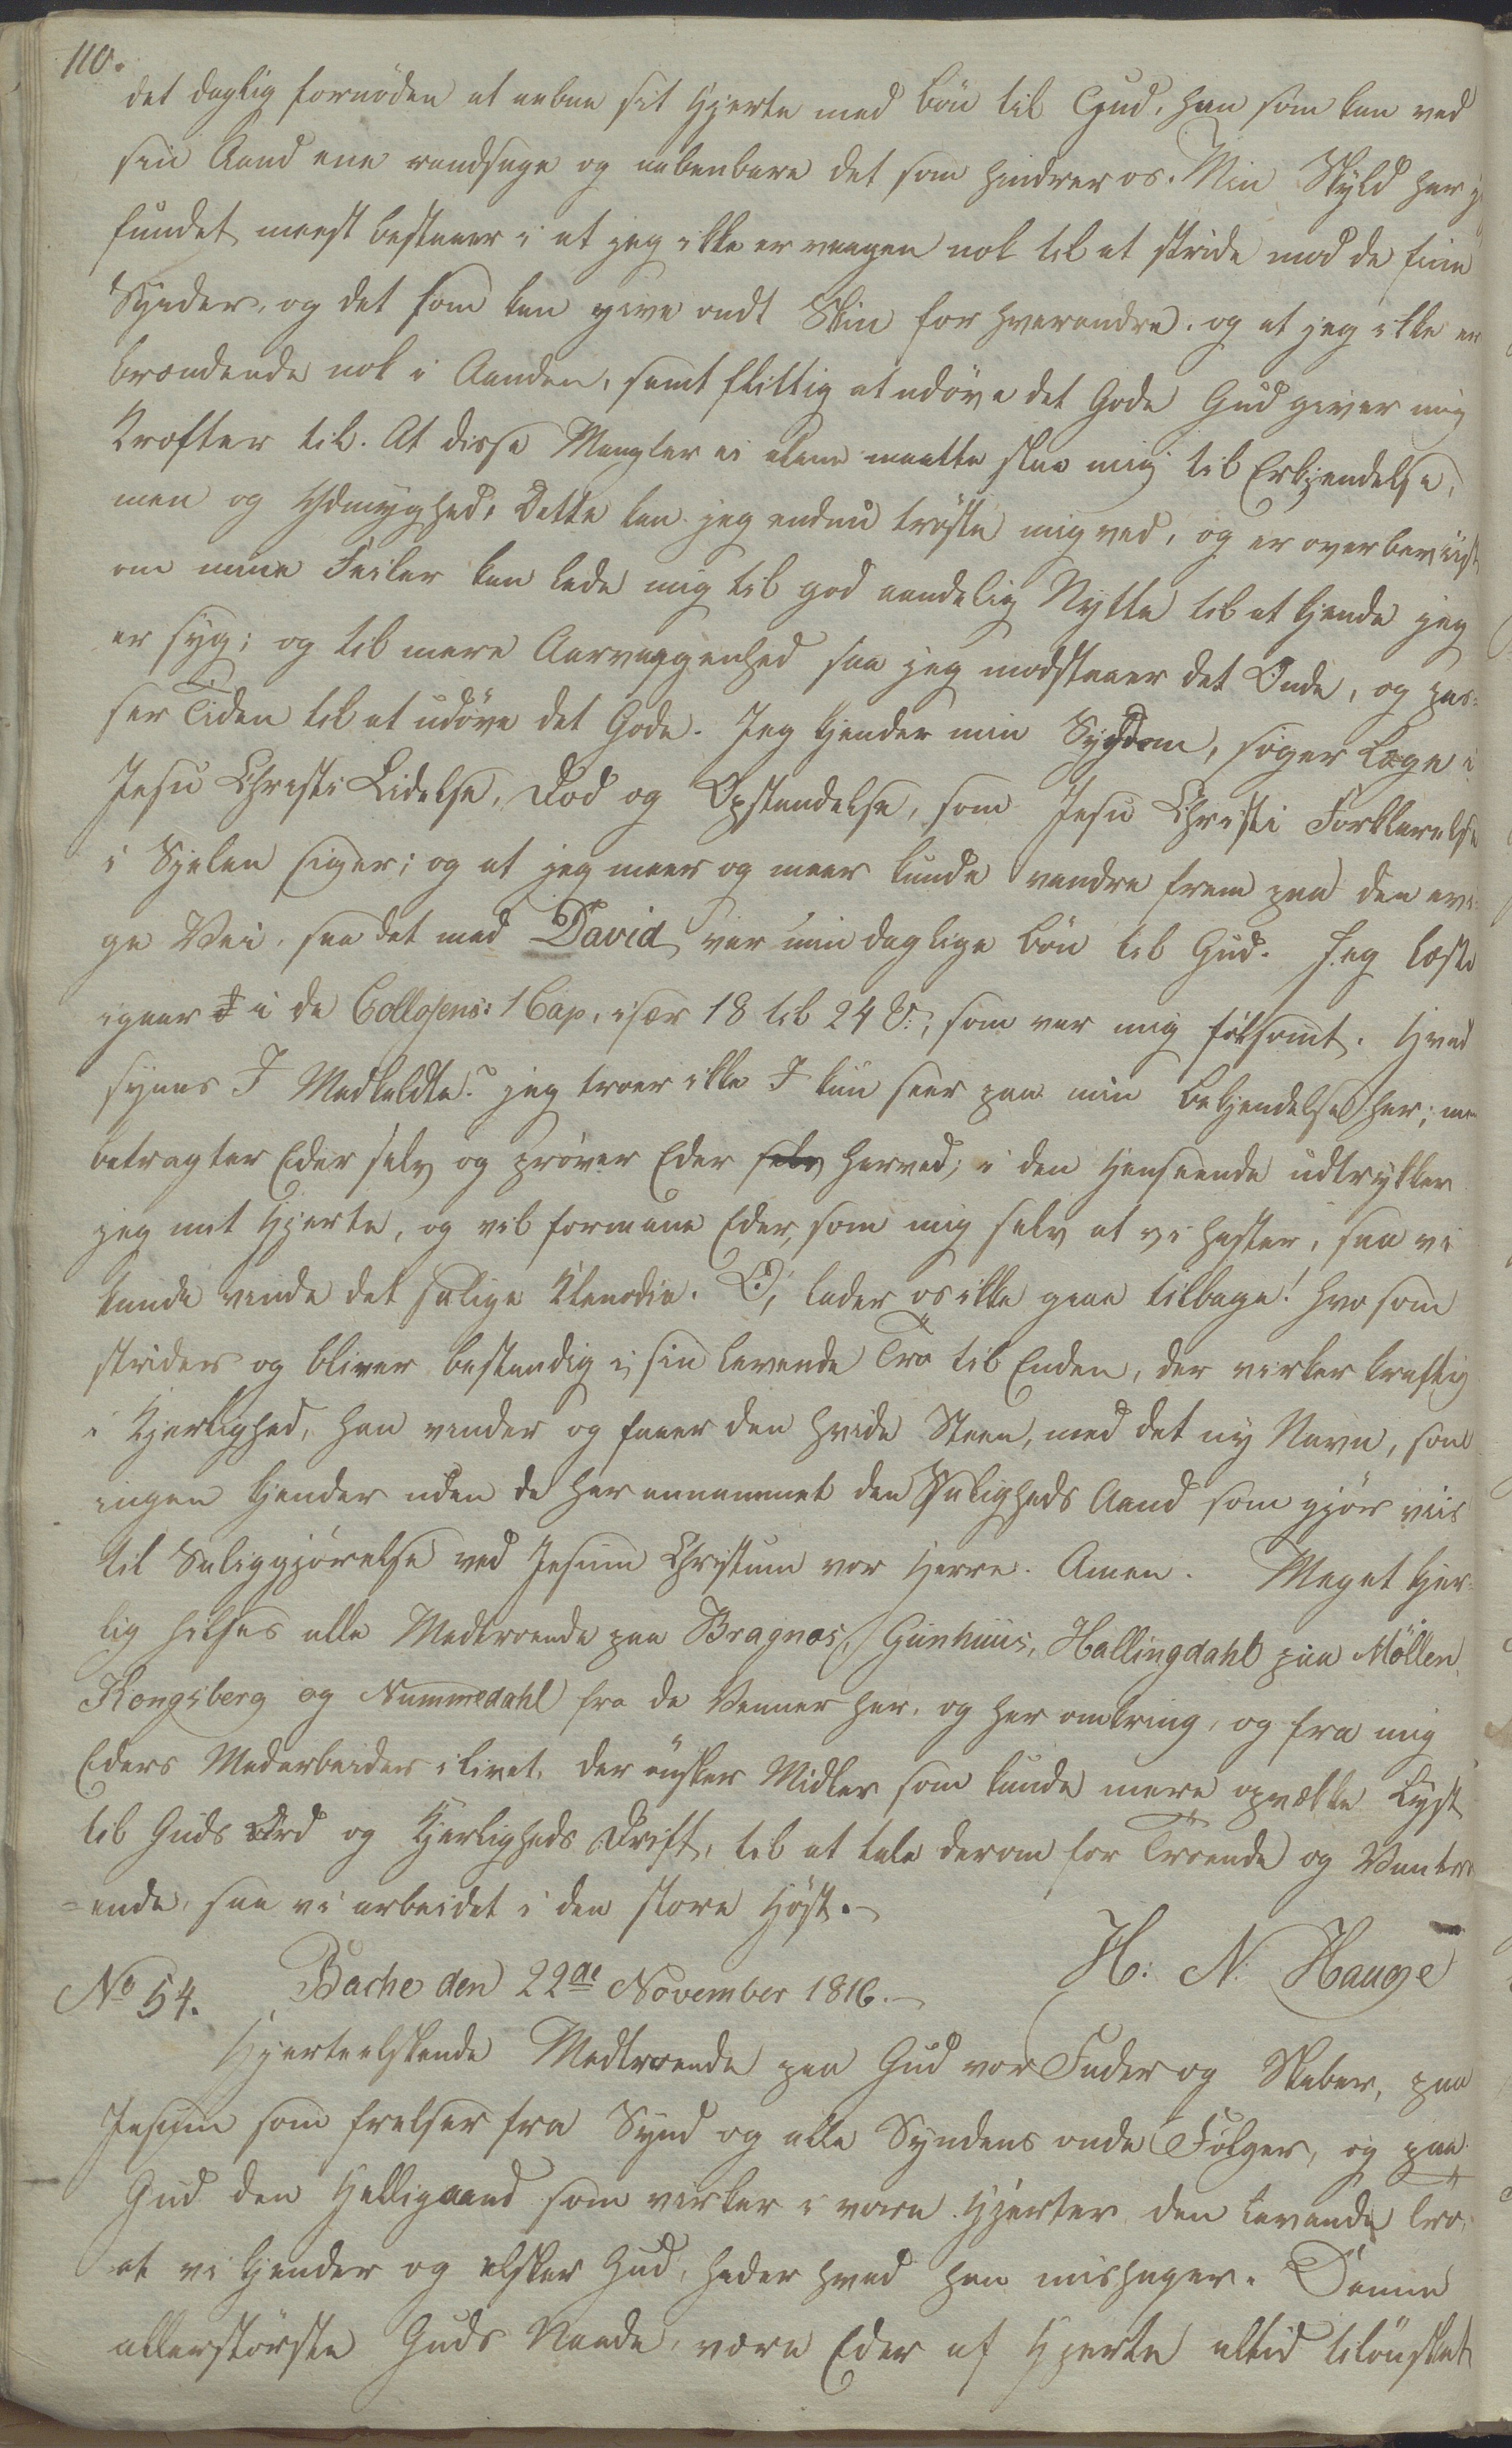 110.
det daglig fornøden at aabne sit Hjerte med Bøn til Gud, han som kan ved
sin Aand ene randsage og aabenbare det som hindrer os. Min Skyld har j
fundet meest bestaaer i at jeg ikke er vaagen nok til at stride mod de fiine
Synder, og det som kan give ondt Skin for hverandre. og at jeg ikke er
brændende nok i Aanden, samt flittig at udøve det Gode Gud giver mig
Kræfter til. At disse Mangler ei alene maatte slaae mig til Erkjendelse,
men og Ydmyghed. Dette kan jeg endnu trøste mig ved, og er overbeviist
om mine Feiler kan lede mig til god aandelig Nytte til at kjende jeg
er syg; og til mere Aarvaagenhed saa jeg modstaaer det Onde, og pas-
ser Tiden til at udøve det Gode. Jeg kjender min Sygdom, søger Læge i
Jesu Christi Lidelse, Død og Opstandelse, som Jesu Christi Forklarelse
i Sjelen siger; og at jeg meer og meer kunde vandre frem paa den evi-
ge Vei, saa det med David var min daglige Bøn til Gud. Jeg læste
igaar i de Collosens: 1 Cap, især 18 til 24 V:, som var mig følsomt. Hvad
synes I Medkaldte? jeg troer ikke I kun seer paa min Bekjendelse her; men
betragter Eder selv og prøver Eder selv herved; i den Henseende udtrykker
jeg mit Hjerte, og vil formane Eder, som mig selv at vi haster, saa vi
kunde vinde det salige Klenodie. O, lader os ikke gaae tilbage! hvo som
strider og bliver bestandig i sin levende Tro til Enden, der virker kraftig
i Kjerlighed, han vinder og faaer den hvide Steen, med det ny Navn, som
ingen kjender uden de har annammet den Saligheds Aand som gjør viis
til Saliggjørelse ved Jesum Christum vor Herre. Amen. Meget kjer-
lig hilses alle Medtroende paa Bragnæs, Gunhuus, Hallingdahl paa Møllen,
Kongsberg og Nummedahl fra de Venner her, og her omkring, og fra mig
Eders Medarbeider i Livet, der ønsker Midler som kunde mere opvække Lyst
til Guds Ord og Kjerligheds Drift, til at tale derom for Troende og Vantro
=ende, saa vi arbeidet i den store Høst.
H: N: Hauge
No 54. Bache den 22de November 1816.
Hjerteelskende Medtroende paa Gud vor Fader og Skaber, paa
Jesum som frelser fra Synd og alle Syndens onde Følger, og paa
Gud den Helligaand som virker i vore Hjerter den levende Tro,
at vi kjender og elsker Gud, hader hvad han mishager. Denne
allerstørste Guds Naade, være Eder af Hjerte altid tilønsket